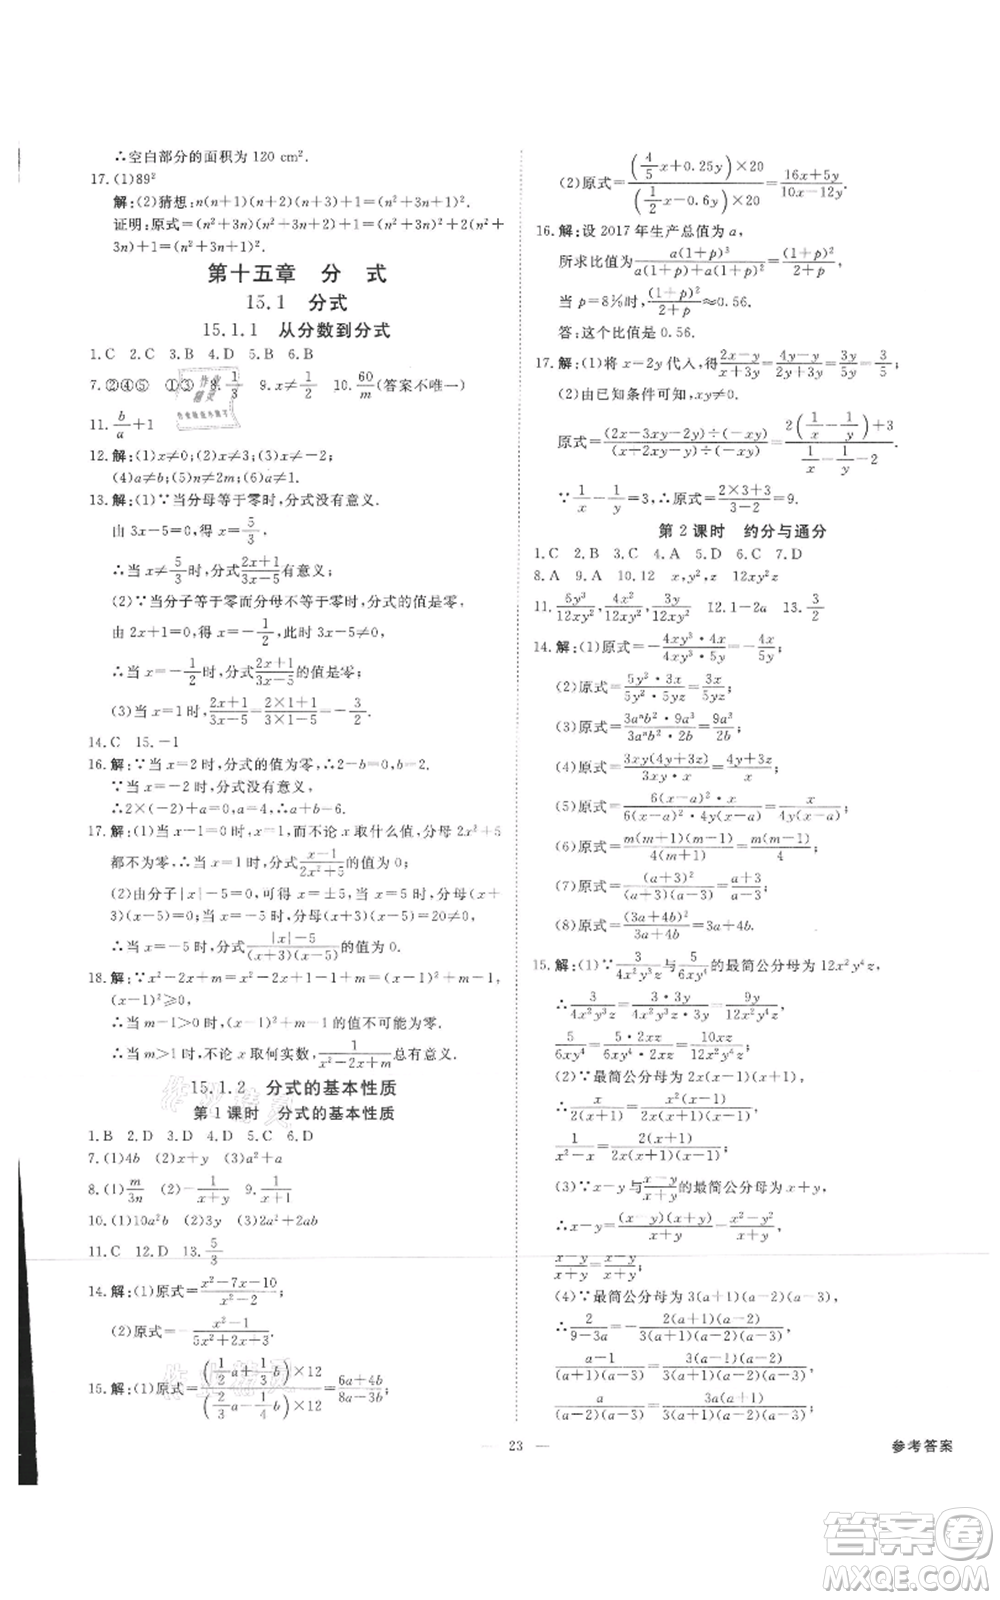 ∴空白部分的面积为 120 cm².
17.(1)89²
解:(2)猜想:n(n+1)(n+2)(n+3)+1=(n²+3n+1)²
证明:原式=(n²+3n)(n²+3n+2)+1=(n²+
3n)²+2(n²+3n)+1=(n²+3n+1)².
第十五章 分 式
15.1 分式
15.1.1 从分数到分式
1.C 2.C 3.B 4.D 5.B 6.B
7.②④⑤ ①③ 8.1/3 9.x≠1/2 10.60/m(答案不唯一)
11.b/a+1
12.解:(1)x≠0;(2)x≠3;(3)x≠-2;
(4)a≠b;(5)n≠2m;(6)a≠1.
13.解:(1)∵当分母等于零时,分式无意义.
由 3x-5=0,得 x=5/3.
∴当 x≠5/3时,分式(2x+1)/(3x-5)有意义;
(2)∵当分子等于零而分母不等于零时,分式的值是零,
由 2x+1=0,得 x=-1/2,此时 3x-5≠0,
∴当 x=-1/2时,分式(2x+1)/(3x-5)的值是零;
(3)当 x=1时,(2x+1)/(3x-5)=(2×1+1)/(3×1-5)=-3/2.
14.C 15.-1
16.解:∵当 x=2时,分式的值为零,∴2-b=0,b=2.
∵当 x=-2时,分式没有意义,
∴2×(-2)+a=0,a=4,∴a+b=6.
17.解:(1)当 x-1=0时,x=1,而不论 x取什么值,分母 2x²+5
都不为零,∴当 x=1时,分式(x-1)/(2x²+5)的值为 0;
(2)由分子|x|-5=0,可得 x=±5,当 x=5时,分母(x+
3)(x-5)=0;当 x=-5时,分母(x+3)(x-5)=20≠0,
∴当 x=-5时,分式(|x|-5)/((x+3)(x-5))的值为 0.
18.解:∵x²-2x+m=x²-2x+1+m-1=(x-1)²+(m-1),
(x-1)²≥0,
∴当 m-1>0时,(x-1)²+m-1的值不可能为零.
∴当 m>1时,不论 x取何实数,1/(x²-2x+m)总有意义.
15.1.2 分式的基本性质
第 1 课时 分式的基本性质
1.B 2.D 3.D 4.D 5.C 6.D
7.(1)4b (2)x+y (3)2a²+2ab
8.(1)m/3n (2)-1/(x+y) 9.1/(x+1)
10.(1)10a²b (2)3y (3)2a²+2ab
11.C 12.D 13.5/3
14.解:(1)原式=(x²-7x-10)/(x²-2);
(2)原式=-(x²-1)/(5x²-2x+1).
15.解:(1)原式=((1/2a+1/3b)×12)/((2/3a-1/4b)×12)=(6a+4b)/(8a-3b);
(2)原式=((4/5x+0.25y)×20)/((1/2x-0.6y)×20)=(16x+5y)/(10x-12y).
16.解:设 2017 年生产总值为 a,
所求比值为a(1+p)²/(a(1+p)+a)=(1+p)²/(2+p),
当 p=8%时,(1+p)²/(2+p)≈0.56.
答:这个比值是 0.56.
17.解:(1)将 x=2y代入,得(2x-y)/(x+3y)=(4y-y)/(2y+3y)=3y/5y=3/5;
(2)由已知条件可知,xy≠0.
原式=((2x-3xy-2y)÷(-xy))/((x+2xy-y)÷(-xy))=(2(1/x-1/y)+3)/(1/x-1/y-2).
∵1/x-1/y=3,∴原式=(2×3+3)/(3-2)=9.
第 2 课时 约分与通分
1.C 2.B 3.C 4.A 5.D 6.C 7.D
8.A 9.A 10.12 x,y²,z 12xy²z
11.6y³/12xy²,4x²/12xy²,y/12xy² 12.1-2a 13.3/2
14.解:(1)原式=-(4xy³·4x)/(4xy³·5y)=-4x/5y;
(2)原式=(5y²·3x)/(5y²·5yz)=3x/5yz;
(3)原式=(3aⁿb²·9a³)/(3aⁿb²·2b)=9a³/2b;
(4)原式=3xy(4y+3z)/(3xy·x)=(4y+3z)/x;
(5)原式=6(x-a)²·x/(6(x-a)²·4y(x-a))=x/(4y(x-a));
(6)原式=m(m+1)(m-1)/(4(m+1))=m(m-1)/4;
(7)原式=(a+3)²/((a+3)(a-3))=(a+3)/(a-3);
(8)原式=(3a+4b)²/(3a+4b)=3a+4b.
15.解:(1)∵3/(4x²y³z)与5/(6xy⁴)的最简公分母为 12x²y⁴z,
∴3/(4x²y³z)=(3·3y)/(4x²y³z·3y)=9y/(12x²y⁴z),
5/(6xy⁴)=(5·2xz)/(6xy⁴·2xz)=10xz/(12x²y⁴z);
(2)∵最简公分母为 2x(x+1)(x-1),
∴x/(2(x+1))=x²(x-1)/(2x(x+1)(x-1)),
1/(x²-x)=2(x+1)/(2x(x+1)(x-1));
(3)∵x-y与(x-y)/(x+y)的最简公分母为 x+y,
∴x-y=(x-y)(x+y)/(x+y)=(x²-y²)/(x+y),
(x-y)/(x+y)=(x-y)/(x+y);
(4)∵最简公分母为 3(a+1)(a-2)(a-3),
∴2/(9-3a)=-2(a+1)(a-2)/(3(a+1)(a-2)(a-3)),
(a-1)/(a²-2a-3)=3(a-1)(a-2)/(3(a+1)(a-2)(a-3)),
a/(a²-5a+6)=3a(a+1)/(3(a+1)(a-2)(a-3)).
— 23 —
参考答案
答案卷
MXQE.COM